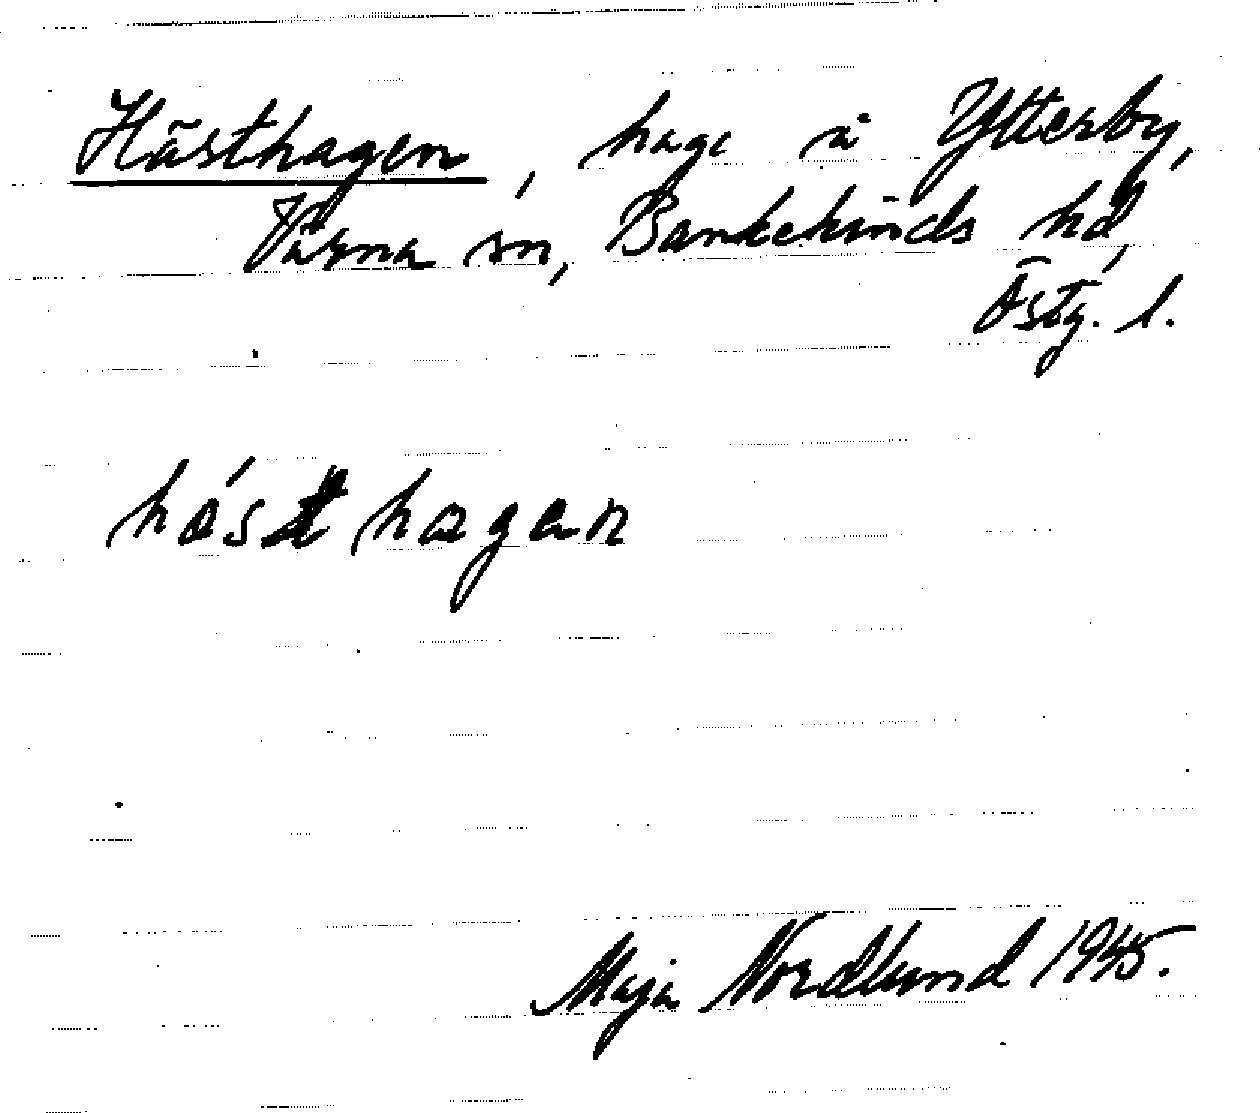 Hästhagen, hage å Ytterby,
Värna sn, Bankekinds hd,
Östg. l.
hásthagen
Maja Nordlund 1945.